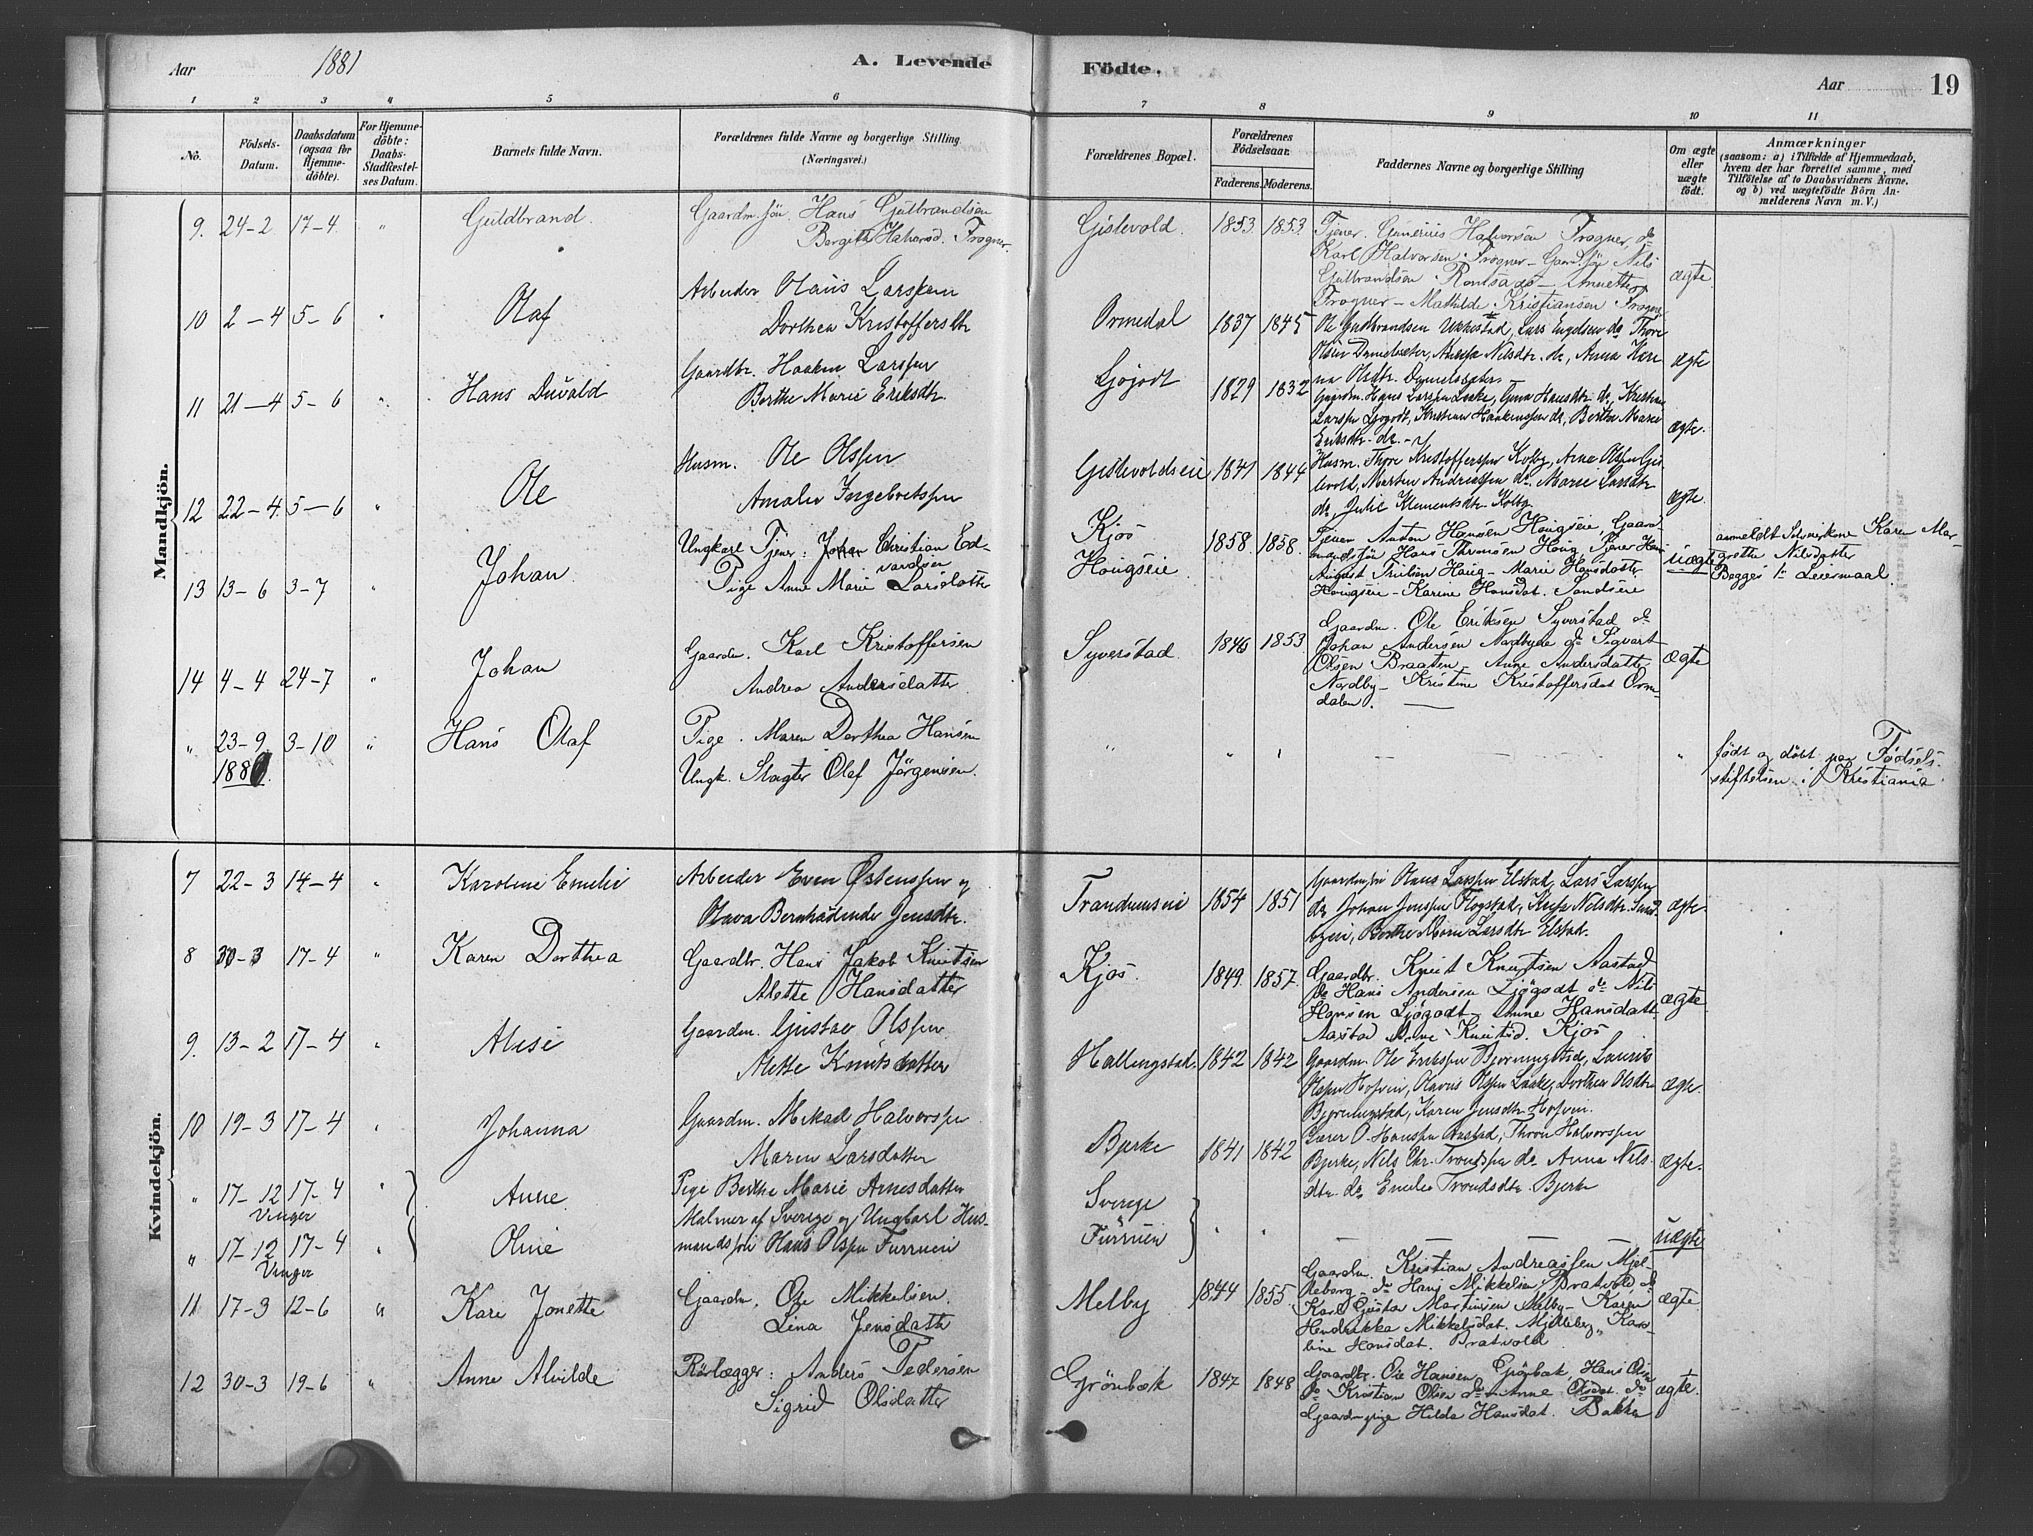 Aar 1881 A. Levende Födte. Aar 19
1 2 3 4 5 6 7 8 9 10 11
No.
Födsels-Datum.
Daabsdatum (ogsaa for Hjemme-döbte).
For Hjemme-döbte: Daabs-Stadfæstel-ses Datum.
Barnets fulde Navn.
Forældrenes fulde Navne og borgerlige Stilling (Næringsvei.)
Forældrenes Bopæl.
Forældrenes Födselsaar.
Faderens. Moderens.
Faddernes Navne og borgerlige Stilling
Om ægte eller uægte födt.
Anmærkninger
(saasom: a) i Tilfælde af Hjemmedaab,
hvem der har forrettet samme, med
Tilföielse af to Daabsvidners Navne.
og b) ved uægtefödte Börn An-
melderens Navn m.V.)
Mandkjön.
9. 24-2 17-4. " Guldbrand. Gaardm. Søn. Hans Gulbrandsen
Bergitte Halvorsd. Frogner.
Gislevold. 1853. 1853.
Tjener. Gunerius Halvorsen Frogner, do
Karl Halvorsen Frogner - Gaardm. Søn Nils
Gulbrandsen
Frogner - Mathilde Kristiansen Frogner
ægte.
10 2-4 5-6 " Olaf Arbeider Olaus Larssen
Dorthea Kristoffersdtr
Ormedal 1837 1845
Ole Guldbrandsen Ukkestad, Lars Engelsen do Thore
Olsen
Olsdtr.
ægte
11 21-4 5-6 " Hans Duvald Gaardbr. Haaken Larssen
Berthe Marie Eriksdtr.
Ljøjodt 1829 1832
Gaardm. Hans Larssen Laake, Gina Hansdtr. do, Kristian
Larssen Ljøgodt, Kristian Haakenssen do, Berthe Marie
Eriksdtr. do.
ægte.
12 22-4. 5-6 " Ole Husm. Ole Olssen
Amalie Ingebretssen
Gislevoldseie 1841 1844
Husm. Thore Kristofferssen Kolby, Arne Olssen Gis-
levold, Morten Andreassen do. Marie Larsdtr.
do, Julie Klementsdtr. Kolby
ægte.
13 13-6 3-7 " Johan. Ungkarl Tjener: Johan Christian Ed-
vardsen
Pige Anne Marie Larsdatter
Kjos
Hougseie. 1858. 1858.
Tjener Anton Hansen Hougseie, Gaard
mandssøn Hans Thronsen Houg, Tjener Hans
August Haug - Marie Hansdatter
Hougseie - Karine Hansdat. Sandseie
uægte
anmeldt Karen Mar-
grethe Nilsdatter
Begges 1ste Leiermaal.
14 4-4 24-7 " Johan Gaardm. Karl Kristoffersen
Andrea Andersdatter
Syverstad. 1846 1853.
Gaardm. Ole Eriksen Syverstad do
Johan Andersen Nordbye do Sigvart
Olsen Braaten - Anne Andersdatter
Nordby - Kristine Kristoffersdat Orm-
dalen.
ægte
" 23-9 1880. 3-10 " Hans Olaf Pige. Maren Dorthea Hansen
Ungk. Slagter Olaf Jörgensen.
" " " — "
født og døbt paa Fødsels-
stiftelsen i Kristiania
Kvindekjön.
7 22-3 14-4 " Karoline Emilie Arbeider Even Østenssen og
Olava Bernhardinde Jensdtr.
Trandumseie 1854 1851
Gaardmssøn Olaus Larssen Elstad, Lars Larssen
do Johan Jenssen Flogstad, Nilsdtr. Sund-
byeie, Berthe Marie Larsdtr Elstad.
ægte.
8 30-3 17-4 " Karen Dorthea Gaardbr. Hans Jakob Knutsen
Alette Hansdatter
Kjos. 1849. 1857.
Gaardbr. Knut Knutsen Aastad
do Hans Andersen Ljögodt do Nils
Hansen Ljögodt - Anne Hansdatt.
Aastad Knutsd. Kjos
ægte
9. 13-2 17-4 " Alise Gaardm. Gustav Olssen.
Alette Knutsdatter
Hallingstad. 1842 1842
Gaardm. Ole Erikssen Bjørningstad, Laurits
Olssen Hofvin, Olavus Olssen Laake, Dorthea Olsdtr.
Bjørningstad, Karen Jensdtr Hofvin.
ægte.
10 19-3 17-4 " Johanna Gaardm. Mikael Halvorssen
Maren Larsdatter
Bjerke 1841 1842
Lærer O. Hanssen Aastad, Thron Halvorssen
Bjerke, Nils Chr. Trondssen do Anna Nils-
dtr. do Emilie Trondsdtr. Bjerke
ægte.
" 17-12 Vinger 17-4 " Anne. Pige Berthe Marie Arnesdatter
Malmer af Sverige og Ungkarl Hus-
" 17-12 Vinger 17-4 " Oline mandssøn Hans Olssen Furrueie
Sverige
Furruen " " —
uægte
11 17-3 12-6 " Kare Jonette Gaardm. Ole Mikkelsen.
Lina Jensdatter
Melby 1844 1855.
Gaardm. Kristian Andreassen Mjel-
leborg - do Hans Mikkelsen Bratvold, do
Karl Gustav Martinsen Melby - Karen
Hendrikka Mikkelsdat. Mjelleborg, Karo-
line Hansdat. Bratvold
ægte.
12 30-3 19-6 " Anne Alvilde Rörlægger: Anders Pedersen
Sigrid Olsdatter
Grönbæk 1847 1848
Gaardbr. Ole Hansen Gröbæk Hans Olsen
do Kristian Olsen do - Anne Olsdat. do
Gaardmspige Hilda Hansdat. Bakke
ægte.